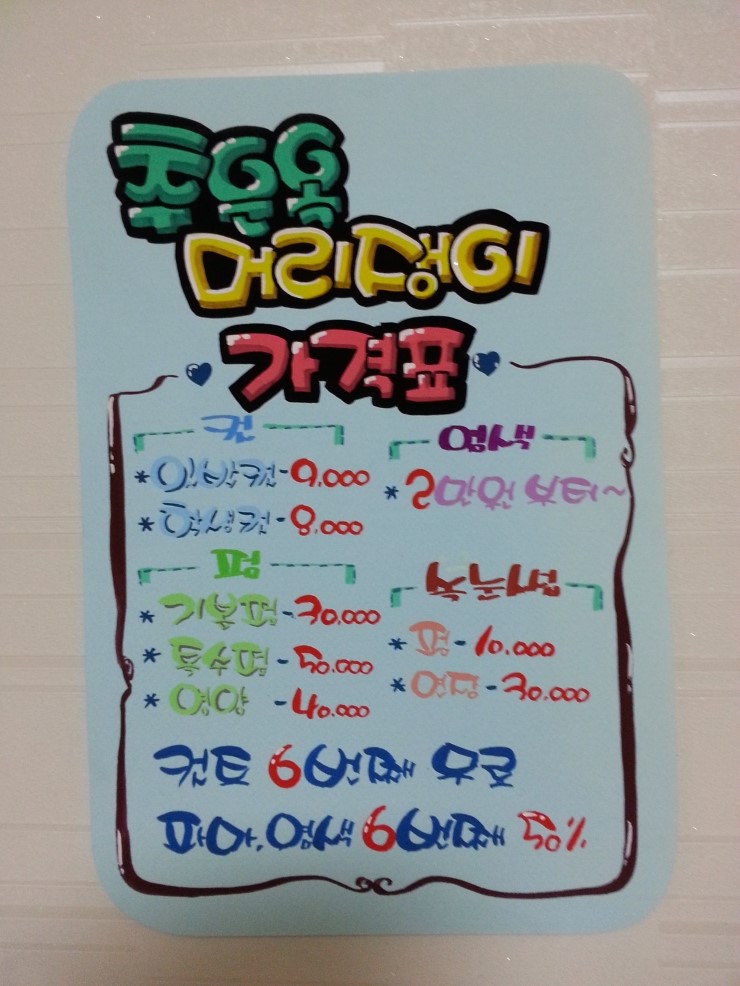 머리쟁이
가격표
컷
*일반컷-9,000
*학생컷-8,000
펌
*기본펌-30,000
*특수펌-50,000
*영양-40,000
염색
*2만원 부터~
속눈썹
*펌-10,000
*연장-30,000
컷트 6번째 무료
파마,염색 6번째 50%